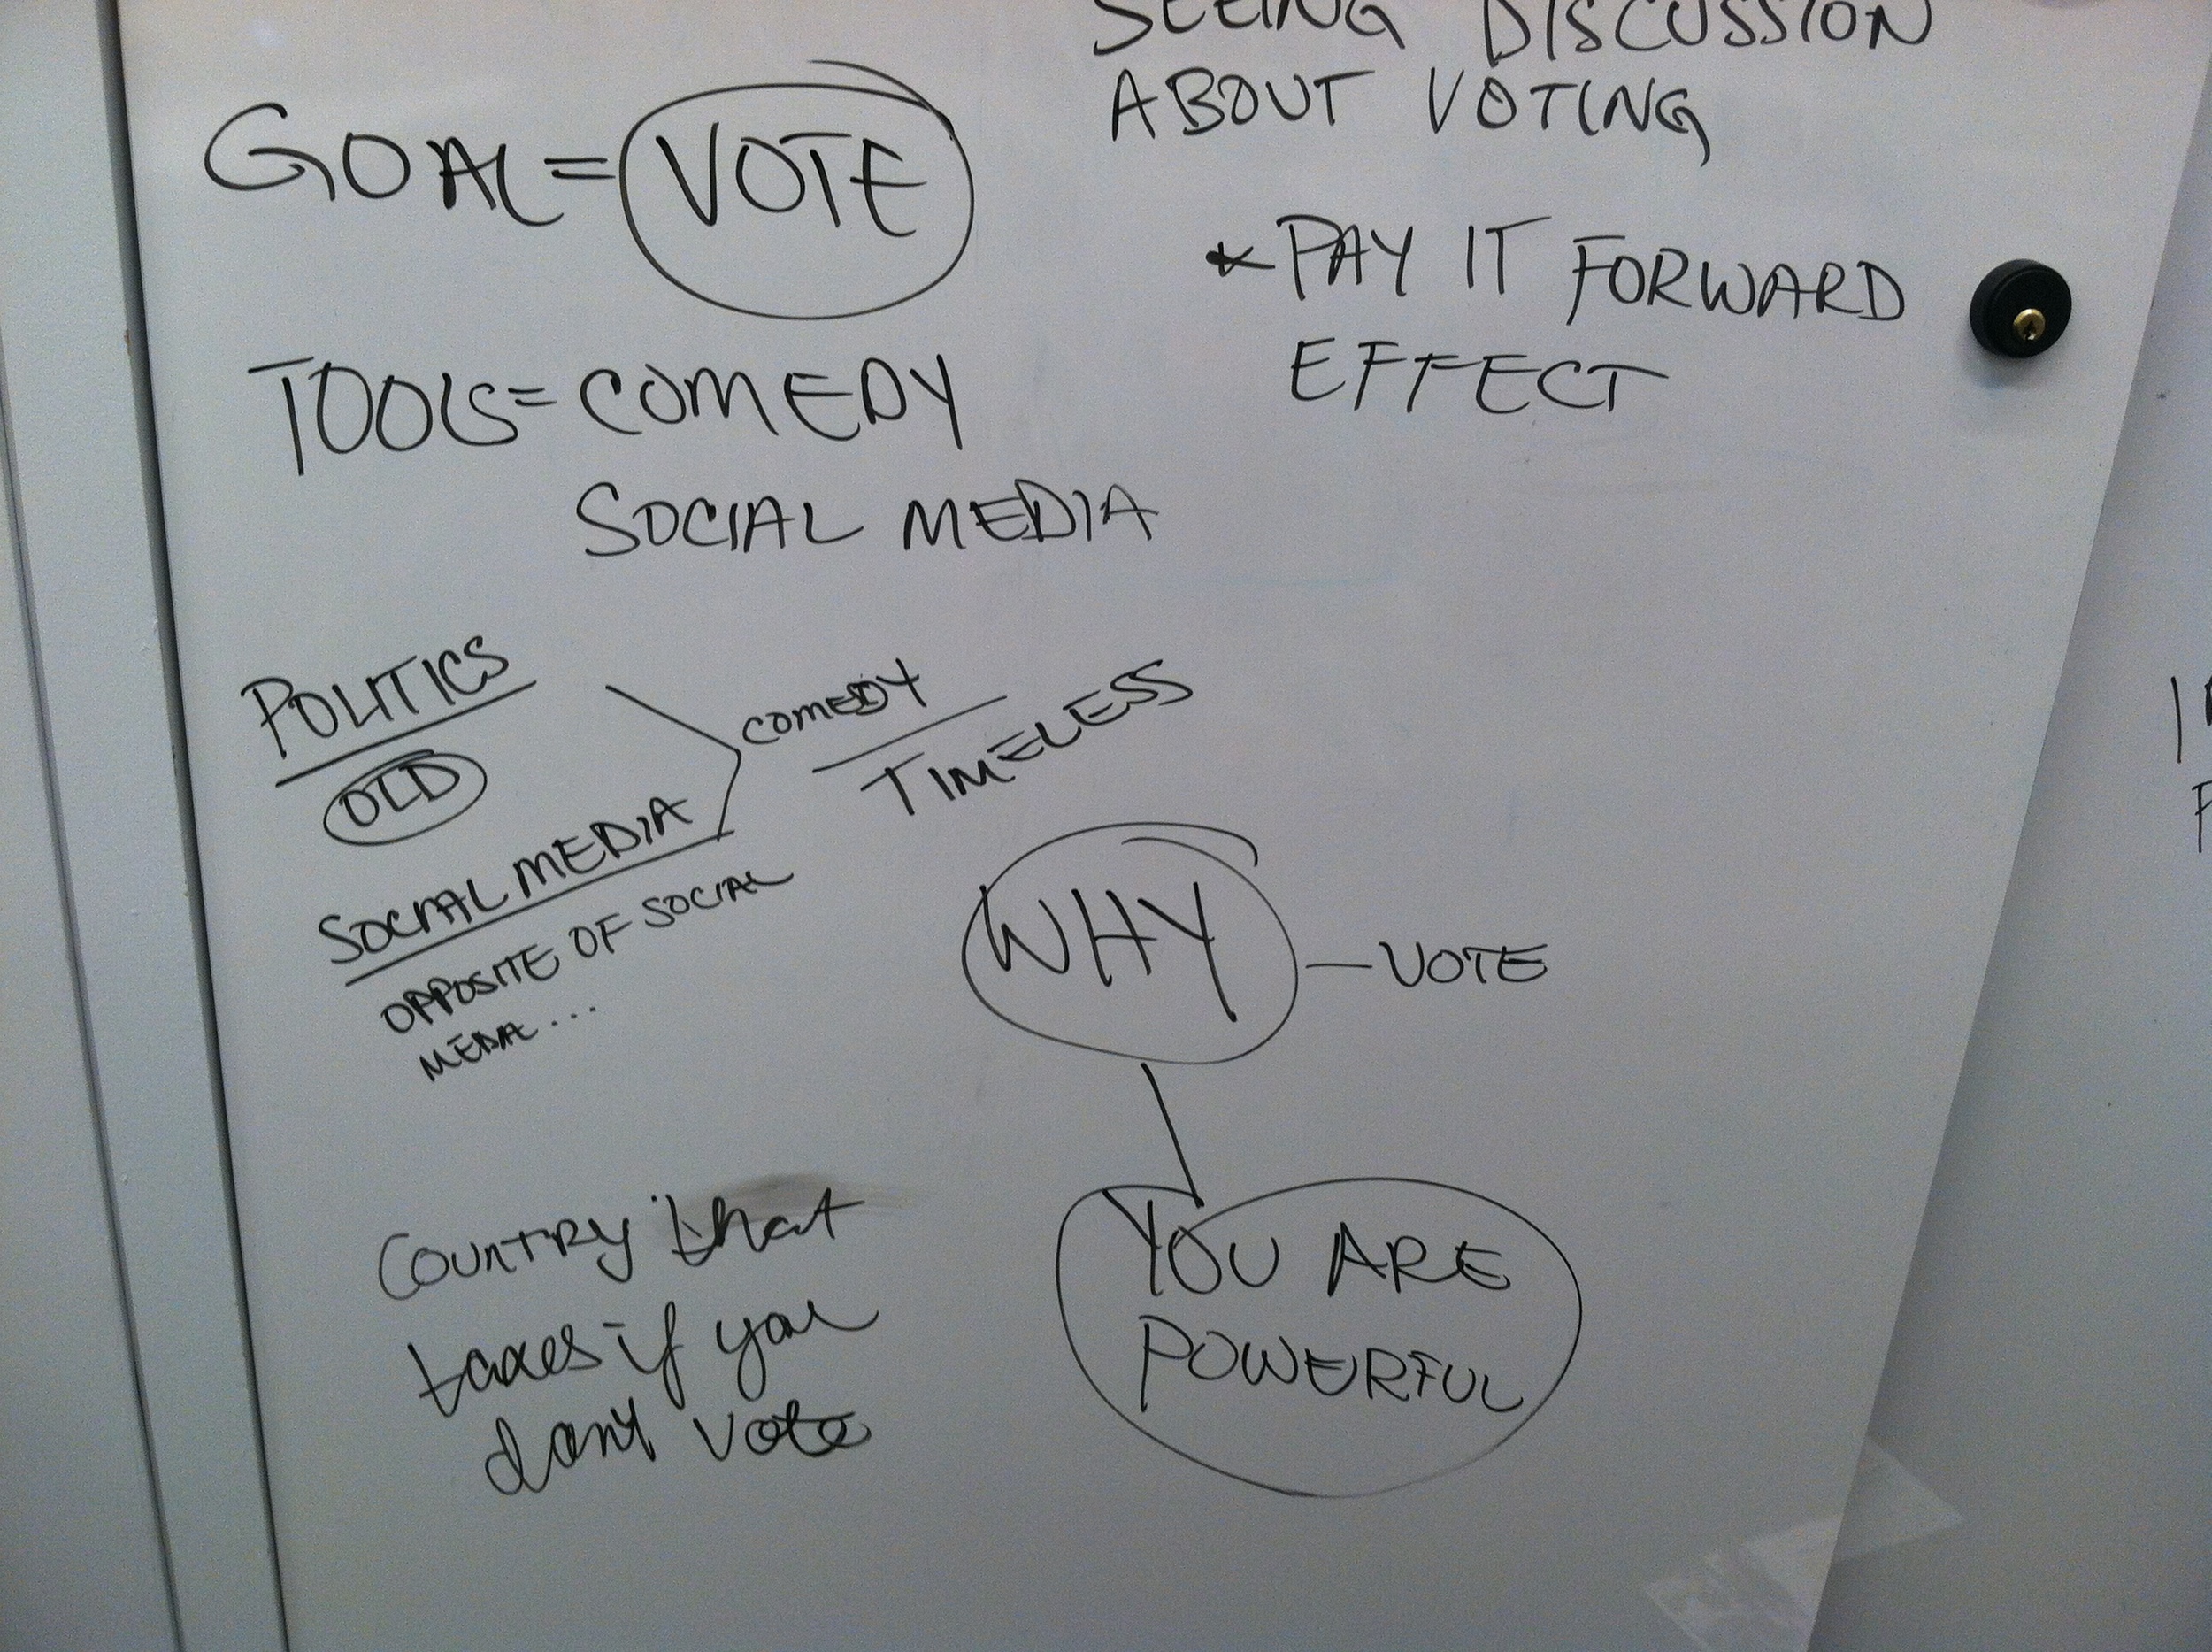 SEEING DISCUSSION
ABOUT VOTING
* PAY IT FORWARD
EFFECT
GOAL = VOTE
TOOLS = COMEDY
SOCIAL MEDIA
POLITICS
OLD
SOCIAL MEDIA
OPPOSITE OF SOCIAL
MEDIA...
COMEDY
TIMELESS
WHY — VOTE
YOU ARE
POWERFUL
COUNTRY that
taxes if you
don't vote